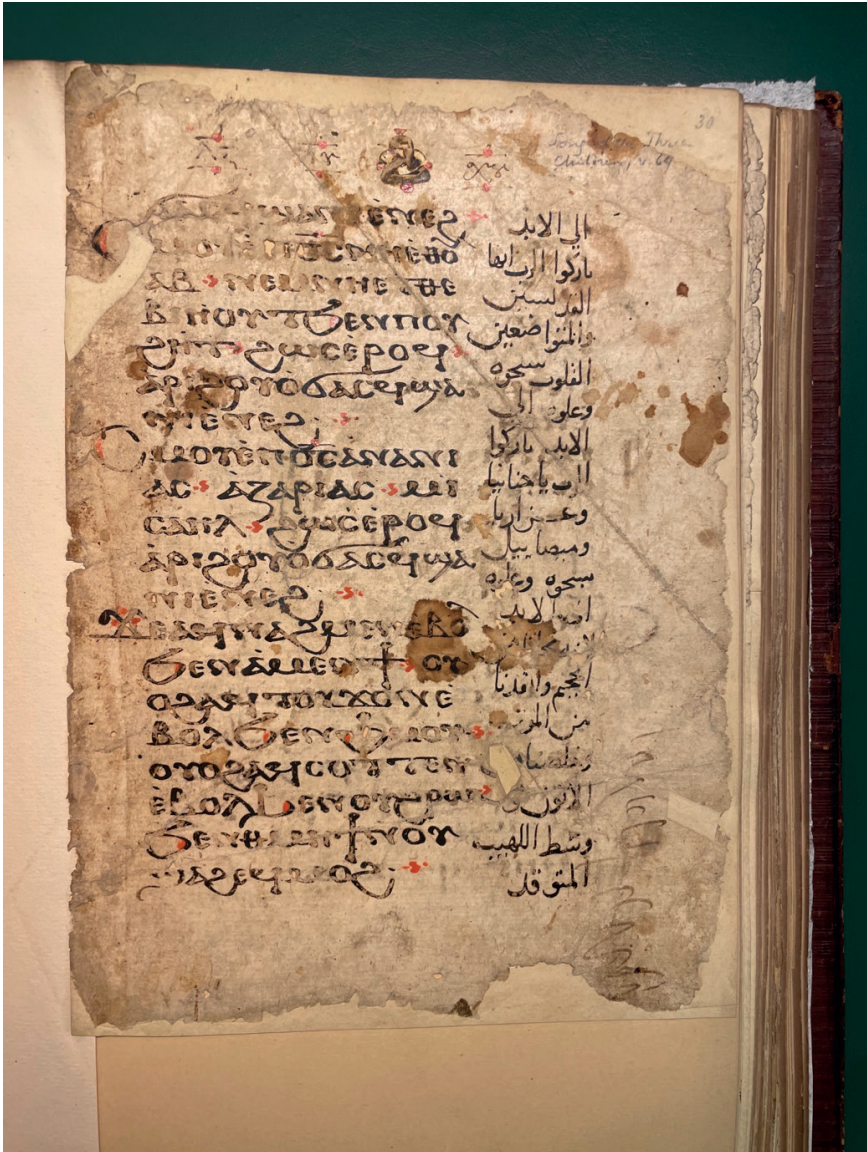 30
Song of the Three
Children, v. 69
ϣⲁⲛⲓⲉ̀ⲛⲉϩ
ⲥⲙⲟⲩⲉ̀ⲡϭ̅ⲥ̅ⲛⲏⲉⲑⲟ
ⲁⲃ ⲛⲉⲙⲛⲏⲉⲧⲑⲉ
ⲃⲓⲏⲟⲩⲧϧⲉⲛⲡⲟⲩ
ϩⲏⲧ ϩⲱⲥⲉ̀ⲣⲟϥ
ⲁ̀ⲣⲓϩⲟⲩⲟ̀ϭⲁⲥϥϣⲁ
ⲛⲓⲉ̀ⲛⲉϩ
ⲥⲙⲟⲩⲉ̀ⲡϭ̅ⲥ̅ⲁⲛⲁⲛⲓ
ⲁⲥ ⲁ̀ⲍⲁⲣⲓⲁⲥ ⲙⲓ
ⲥⲁⲏⲗ ϩⲱⲥⲉ̀ⲣⲟϥ
ⲁ̀ⲣⲓϩⲟⲩⲟ̀ϭⲁⲥϥϣⲁ
ⲛⲓⲉⲛⲉϩ
ϫⲉⲁϥⲛⲁϩⲙⲉⲛⲉⲃⲟ
ϧⲉⲛⲁ̀ⲙⲉⲛϯ ⲟⲩ
ⲟϩⲁϥⲧⲟⲩϫⲟⲛⲉ̀
ⲃⲟⲗϧⲉⲛⲫ̀ⲙⲟⲩ
ⲟⲩⲟϩⲁϥⲥⲟⲧⲧⲉⲛ
ⲉ̀ⲃⲟⲗϧⲉⲛⲟⲩϩⲣⲱ
ϧⲉⲛⲑⲙⲏϯⲛⲟⲩ
ϣⲁϩⲉϥⲙⲟϩ
الي الابد
باركوا الرب ايها
القديسين
والمتواضعين
القلوب سبحوه
وعلوه الي
الابد باركوا
الرب يا حنانيا
وعزاريا
وميصاييل
سبحوه وعلوه
الابد
الجحيم وانقذنا
من الموت
وخلصنا
الاتون
وسط اللهيب
المتوقد